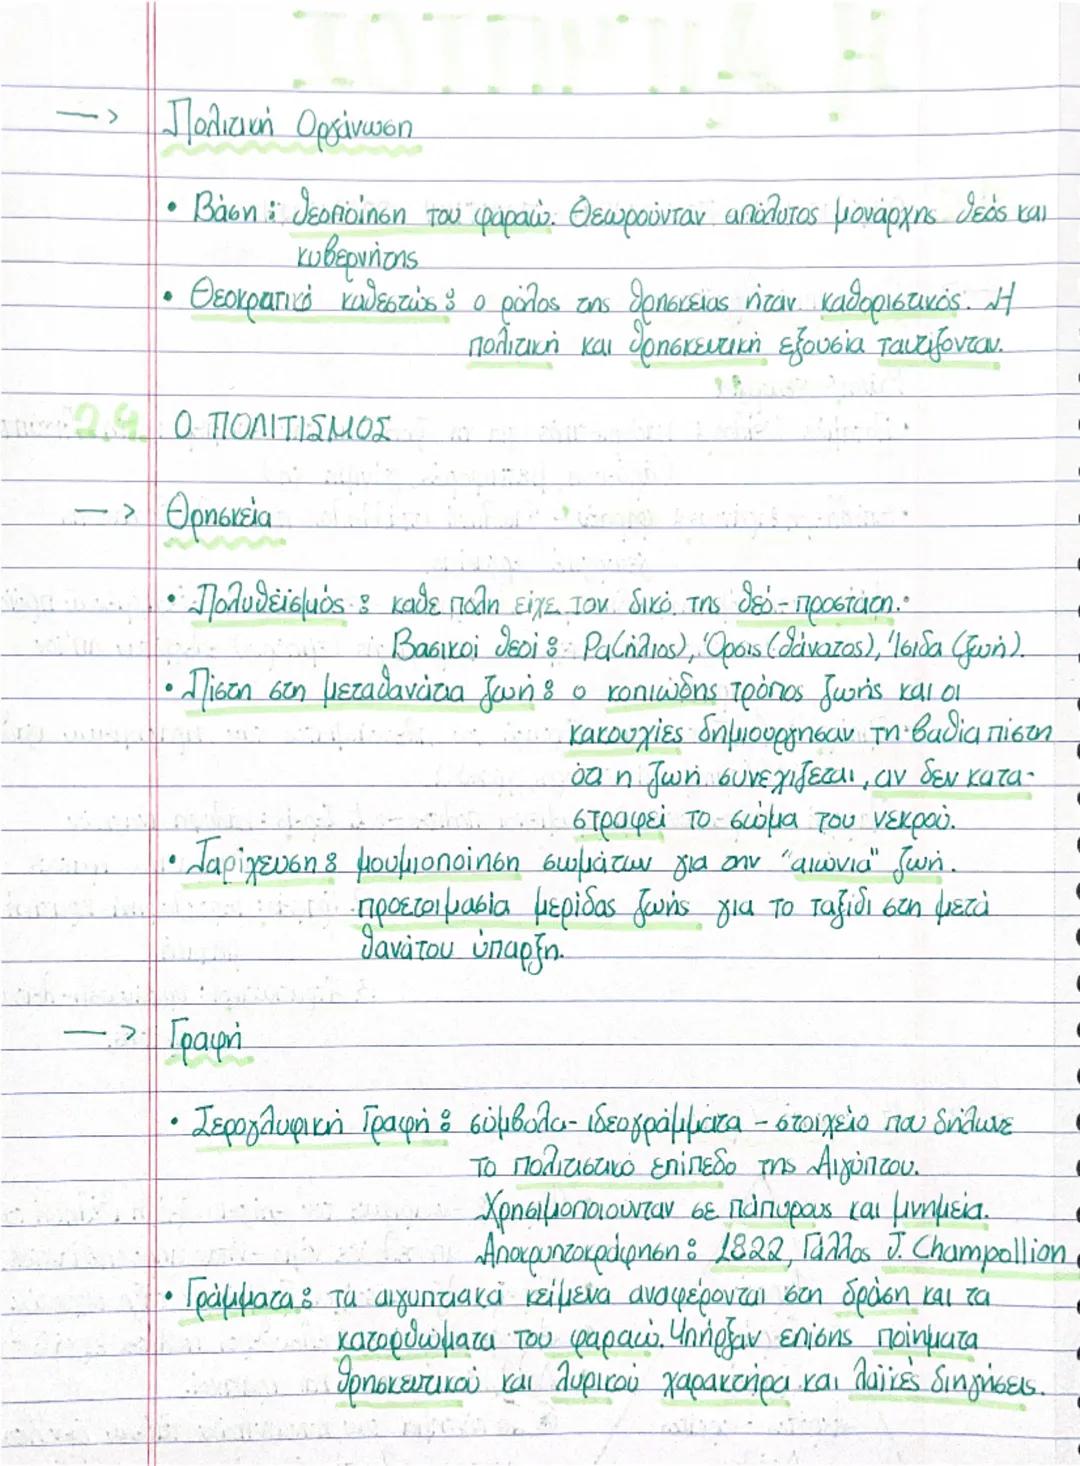 —> Πολιτική Οργάνωση
• Βάση : θεοποίηση του φαραώ. Θεωρούνταν απόλυτος μονάρχης θεός και
κυβερνήτης
• Θεοκρατικό καθεστώς : ο ρόλος της θρησκείας ήταν καθοριστικός. Η
πολιτική και θρησκευτική εξουσία ταυτίζονταν.
2.4. Ο ΠΟΛΙΤΙΣΜΟΣ
—> Θρησκεία
• Πολυθεϊσμός : κάθε πόλη είχε τον δικό της θεό - προστάτη.
Βασικοί θεοί : Ρα(ήλιος), Όρσις (θάνατος), Ίσιδα (ζωή).
• Πίστη στη μεταθανάτια ζωή : ο κοπιώδης τρόπος ζωής και οι
κακουχίες δημιούργησαν τη βαθιά πίστη
ότι η ζωή συνεχίζεται, αν δεν κατα-
στραφεί το σώμα του νεκρού.
• Ταρίχευση : μουμιοποίηση σωμάτων για την "αιώνια" ζωή.
προετοιμασία μερίδας ζωής για το ταξίδι στη μετά
θανάτου ύπαρξη.
—> Γραφή
• Ιερογλυφική Γραφή : σύμβολα- ιδεογράμματα - στοιχείο που δήλωνε
το πολιτιστικό επίπεδο της Αιγύπτου.
Χρησιμοποιούνταν σε πάπυρους και μνημεία.
Αποκρυπτογράφηση : 1822, Γάλλος J. Champollion
• Γράμματα : τα αιγυπτιακά κείμενα αναφέρονται στη δράση και τα
κατορθώματα του φαραώ. Υπήρξαν επίσης ποιήματα
θρησκευτικού και λυρικού χαρακτήρα και λαϊκές διηγήσεις.